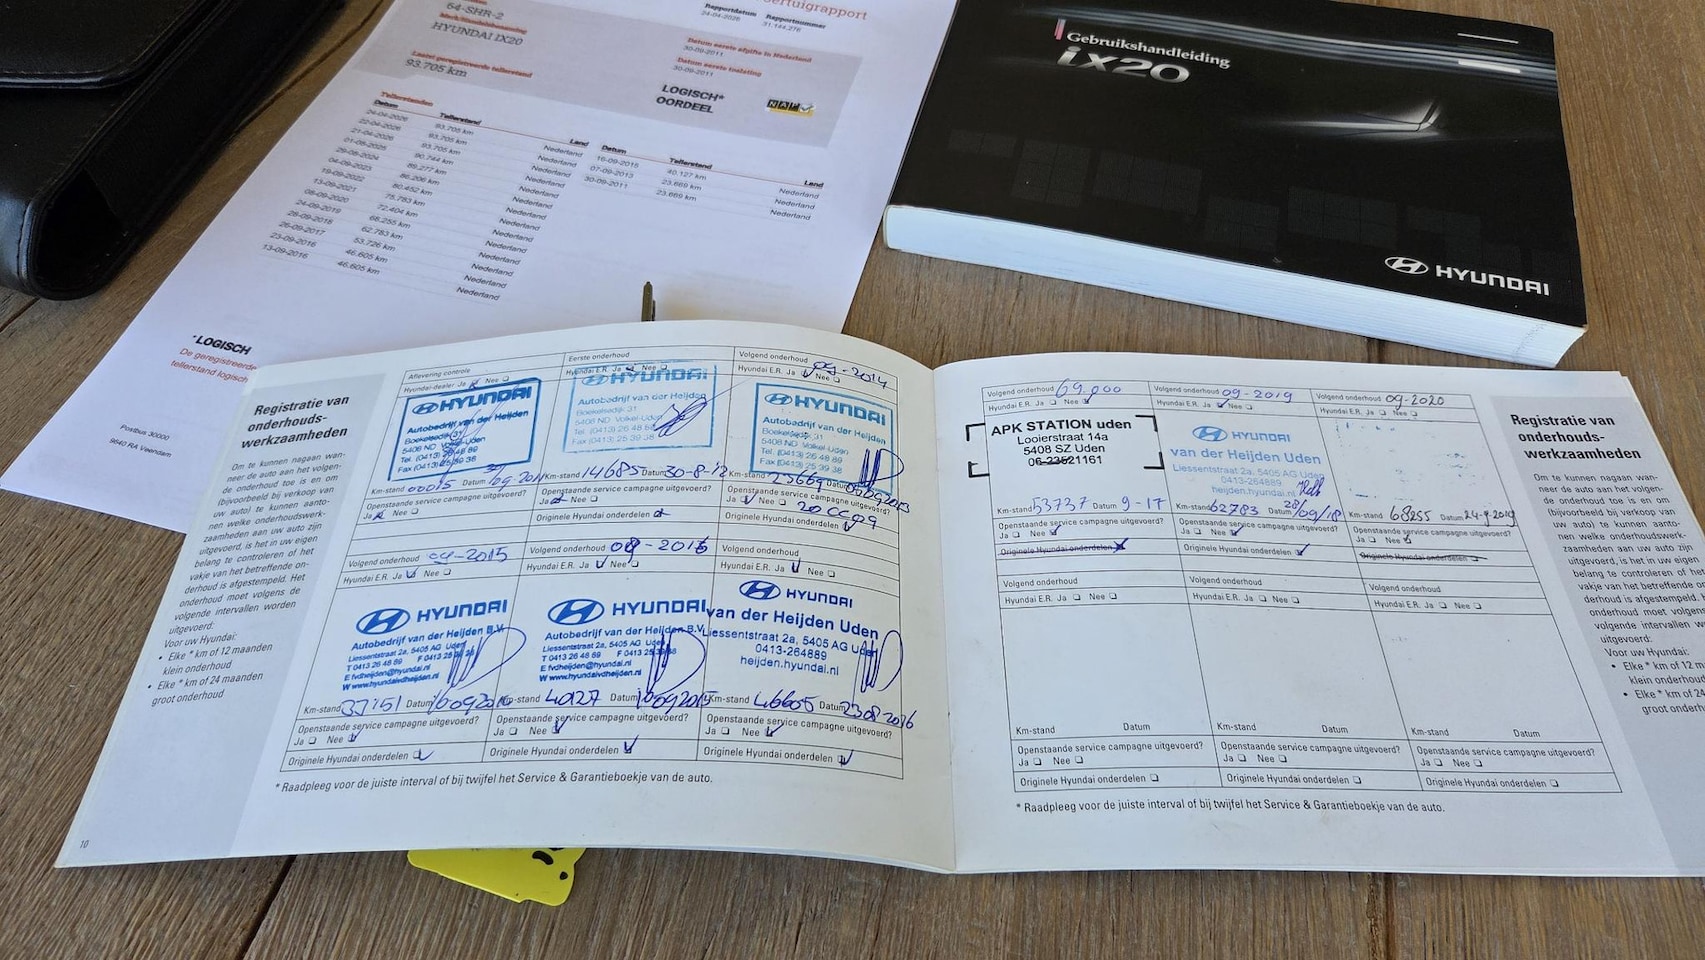 64-SHR-2
HYUNDAI IX20
93.705 km
Rapportdatum
24-04-2026
Rapportnummer
31.144.276
Datum eerste afgifte in Nederland
30-09-2011
Datum eerste toelating
30-09-2011
LOGISCH*
OORDEEL
NAP
Tellerstanden
Datum Tellerstand Land
24-04-2026 93.705 km Nederland
22-04-2026 93.705 km Nederland
21-04-2026 93.705 km Nederland
90.744 km Nederland
89.277 km Nederland
86.206 km Nederland
80.452 km Nederland
75.783 km Nederland
72.404 km Nederland
68.255 km Nederland
62.783 km Nederland
53.726 km Nederland
46.605 km Nederland
13-09-2016 46.605 km Nederland
Datum Tellerstand Land
16-09-2015 40.127 km Nederland
07-09-2013 23.669 km Nederland
30-09-2011 23.669 km Nederland
*LOGISCH
De geregistreerde
tellerstand logisch
Postbus 30000
9640 RA Veendam
Gebruikshandleiding
ix20
HYUNDAI
Registratie van
onderhouds-
werkzaamheden
Om te kunnen nagaan wan-
neer de auto aan het volgen-
de onderhoud toe is en om
(bijvoorbeeld bij verkoop van
uw auto) te kunnen aanto-
nen welke onderhoudswerk-
zaamheden aan uw auto zijn
uitgevoerd, is het in uw eigen
belang te controleren of het
vakje van het betreffende on-
derhoud is afgestempeld. Het
onderhoud moet volgens de
volgende intervallen worden
uitgevoerd:
Voor uw Hyundai:
• Elke * km of 12 maanden
klein onderhoud
• Elke * km of 24 maanden
groot onderhoud
10
Aflevering controle
Hyundai-dealer Ja Nee
HYUNDAI
Autobedrijf van der Heijden
Boekelsedijk 31
5408 ND Volkel-Uden
Tel. (0413) 26 48 89
Fax (0413) 25 39 38
Km-stand 00015 Datum
Openstaande service campagne uitgevoerd?
Ja Nee
Eerste onderhoud
Hyundai E.R. Ja Nee
HYUNDAI
Autobedrijf van der Heijden
Boekelsedijk 31
5408 ND Volkel-Uden
Tel. (0413) 26 48 89
Fax (0413) 25 39 38
Km-stand 14685 Datum 30-8-'12
Openstaande service campagne uitgevoerd?
Ja Nee
Originele Hyundai onderdelen
Volgend onderhoud 09-2014
Hyundai E.R. Ja Nee
HYUNDAI
Autobedrijf van der Heijden
Boekelsedijk 31
5408 ND Volkel-Uden
Tel. (0413) 26 48 89
Fax (0413) 25 39 38
Km-stand 23669 Datum
Openstaande service campagne uitgevoerd?
Ja Nee
Originele Hyundai onderdelen
Volgend onderhoud 09-2015
Hyundai E.R. Ja Nee
HYUNDAI
Autobedrijf van der Heijden B.V.
Liessentstraat 2a, 5405 AG Uden
T 0413 26 48 89 F 0413 25 39 38
E fvdheijden@hyundai.nl
W www.hyundaivdheijden.nl
Km-stand 37151 Datum
Openstaande service campagne uitgevoerd?
Ja Nee
Originele Hyundai onderdelen
Volgend onderhoud 09-2016
Hyundai E.R. Ja Nee
HYUNDAI
Autobedrijf van der Heijden B.V.
Liessentstraat 2a, 5405 AG Uden
T 0413 26 48 89 F 0413 25 39 38
E fvdheijden@hyundai.nl
W www.hyundaivdheijden.nl
Km-stand 40127 Datum 16092015
Openstaande service campagne uitgevoerd?
Ja Nee
Originele Hyundai onderdelen
Volgend onderhoud
Hyundai E.R. Ja Nee
HYUNDAI
van der Heijden Uden
Liessentstraat 2a, 5405 AG Uden
0413-264889
heijden.hyundai.nl
Km-stand 46605 Datum
Openstaande service campagne uitgevoerd?
Ja Nee
Originele Hyundai onderdelen
* Raadpleeg voor de juiste interval of bij twijfel het Service & Garantieboekje van de auto.
Volgend onderhoud 69.000
Hyundai E.R. Ja Nee
APK STATION uden
Looierstraat 14a
5408 SZ Uden
06-23521161
Km-stand 53737 Datum 9-17
Openstaande service campagne uitgevoerd?
Ja Nee
Originele Hyundai onderdelen
Volgend onderhoud 09-2019
Hyundai E.R. Ja Nee
HYUNDAI
van der Heijden Uden
Liessentstraat 2a, 5405 AG Uden
0413-264889
heijden.hyundai.nl
Km-stand 62783 Datum 28/09/18
Openstaande service campagne uitgevoerd?
Ja Nee
Originele Hyundai onderdelen
Volgend onderhoud 09-2020
Hyundai E.R. Ja Nee
Km-stand 68255 Datum 24-9-2019
Openstaande service campagne uitgevoerd?
Ja Nee
Originele Hyundai onderdelen
Volgend onderhoud
Hyundai E.R. Ja Nee
Km-stand Datum
Openstaande service campagne uitgevoerd?
Ja Nee
Originele Hyundai onderdelen
Volgend onderhoud
Hyundai E.R. Ja Nee
Km-stand Datum
Openstaande service campagne uitgevoerd?
Ja Nee
Originele Hyundai onderdelen
Volgend onderhoud
Hyundai E.R. Ja Nee
Km-stand Datum
Openstaande service campagne uitgevoerd?
Ja Nee
Originele Hyundai onderdelen
* Raadpleeg voor de juiste interval of bij twijfel het Service & Garantieboekje van de auto.
Registratie van
onderhouds-
werkzaamheden
Om te kunnen nagaan wan-
neer de auto aan het volgen-
de onderhoud toe is en om
(bijvoorbeeld bij verkoop van
uw auto) te kunnen aanto-
nen welke onderhoudswerk-
zaamheden aan uw auto zijn
uitgevoerd, is het in uw eigen
belang te controleren of het
vakje van het betreffende on
derhoud is afgestempeld. H
onderhoud moet volgens
volgende intervallen word
uitgevoerd:
Voor uw Hyundai:
• Elke * km of 12 m
klein onderhoud
• Elke * km of 24
groot onderho